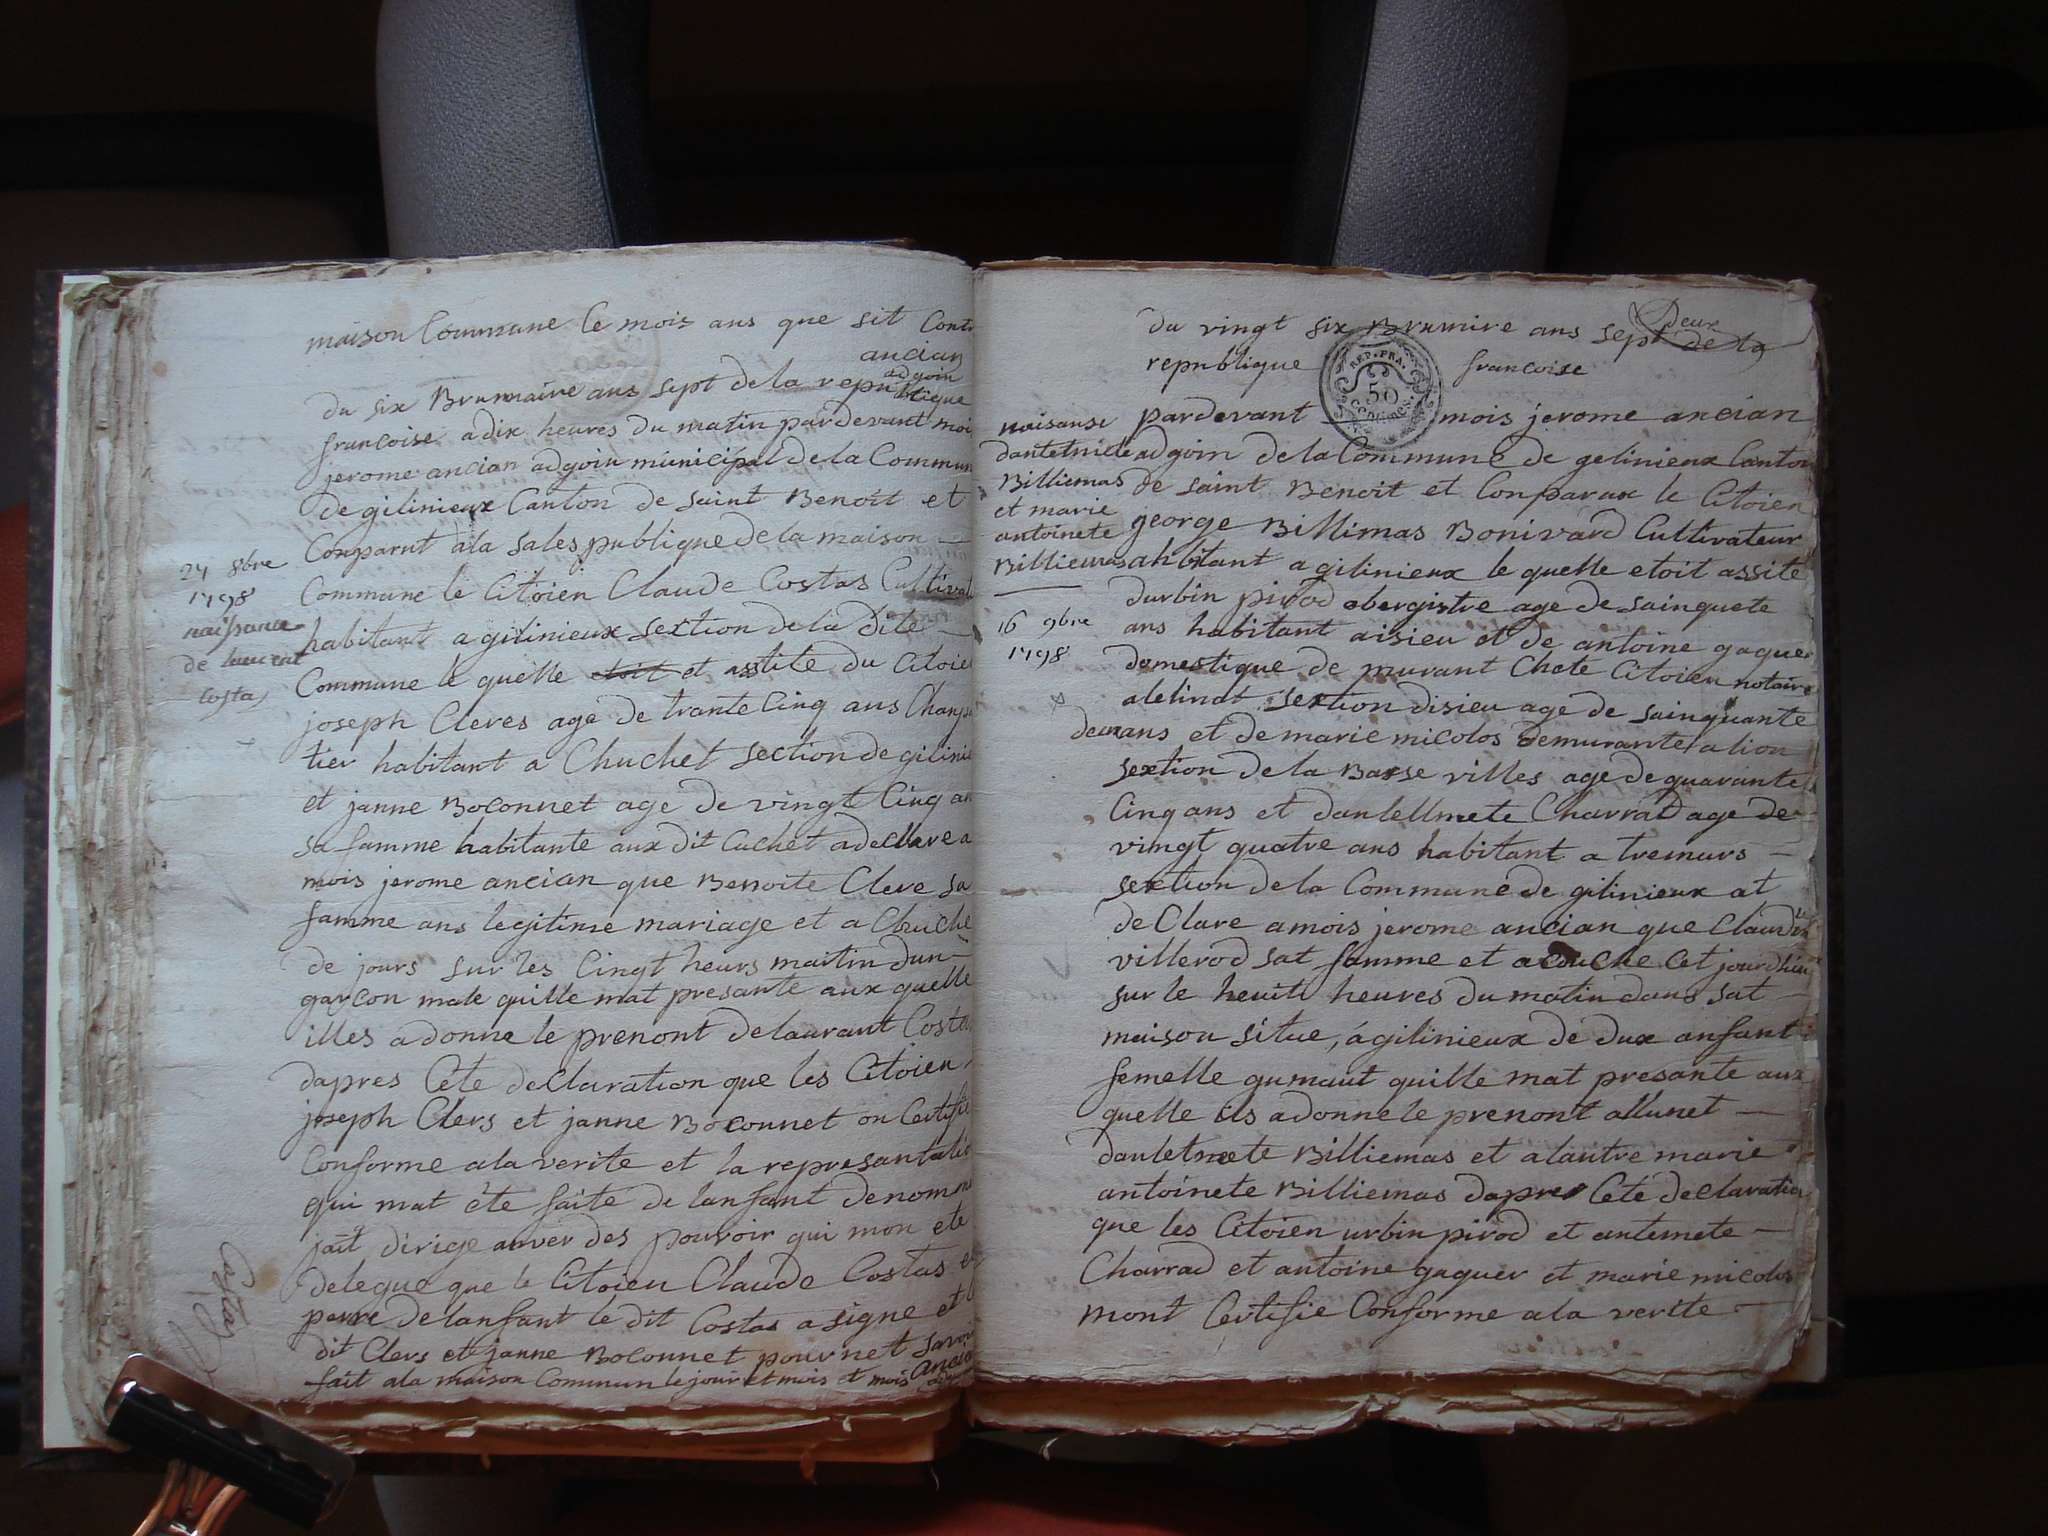 maison Commune le mois ans que sit
ancian
adgoin
du six Brumaire ans sept de la republique
francoise a dix heures du matin pardevant moi
jerome ancian adgoin municipal de la Commun
de gilinieux Canton de saint Benoit et
Conparut a la sales publique de la maison —
Commune le Citoien Claude Costas
habitant a gilinieux sextion de la dite —
Commune le quelle etoit et astite du Citoie
joseph Cleres age de trante Cinq ans
tier habitant a Chuchet section de
et janne Boconnet age de vingt Cinq an
sa famme habitante aux dit Cuchet a declere a
mois jerome ancian que Benoite Clere sa
famme ans legitime mariage et a
de jours sur les Cingt heurs martin dun
garcon male quille mat presante aux quelle
illes a donne le prenont de laurant Costa
dapres Cete declaration que les Citoien
joseph Clers et janne Boconnet on Certifie
Conforme a la verite et la
qui mat ete faite de lanfant
jait dirige anver des pouvoir qui mon ete
delegue que le Citoien Claude Costas
perre de lanfant le dit Costas a signe et
dit Clers et janne Boconnet pour net savoir
fait a la maison Commun le jour et mois et mois ancian
24 8bre
1798
naissance
de laurent
Costas
Costaz
Deux
du vingt six Brumire ans sept de la
republique francoise
REP. FRA.
50
CENTIMES
pardevant mois jerome ancian
adgoin de la Commune de gelinieux Canton
de saint Benoit et Conparax le Citoien
george Billimas Bonivard Cultivateur
ahbitant a gilinieux le quelle etoit assite
durbin pirod obergistre age de sainquete
ans habitant aisieu et de antoine gaguer
domestique de murant Chete Citoien notaire
alelinat sextion disieu age de sainquante
deux ans et de marie micolos demurante a lion
sextion de la Basse villes age de quarante
Cinq ans et dantellmete Charrad age de
vingt quatre ans habitant a tremurs —
sextion de la Commune de gilinieux at
de Clare a mois jerome ancian que
villerod sat famme et acouche Cet jourdhui
sur le heuite heures du matin dans sat —
maison situe, a gilinieux de dux anfant
femelle gumaut quille mat presante aux
quelle ils a donne le prenont allunet —
dantelmete Billiemas et alautre marie
antoinete Billiemas dapres Cete declaration
que les Citoien urbin pirod et antemete —
Charrad et antoine gaguer et marie micolos
mont Certifie Conforme a la verite —
naisanse
dantelmete
Billiemas
et marie
antoinete
Billiemas
16 9bre
1798